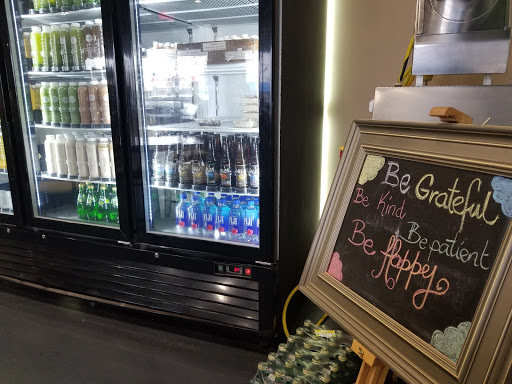 Be Grateful
Be Kind
Be patient
Be Happy